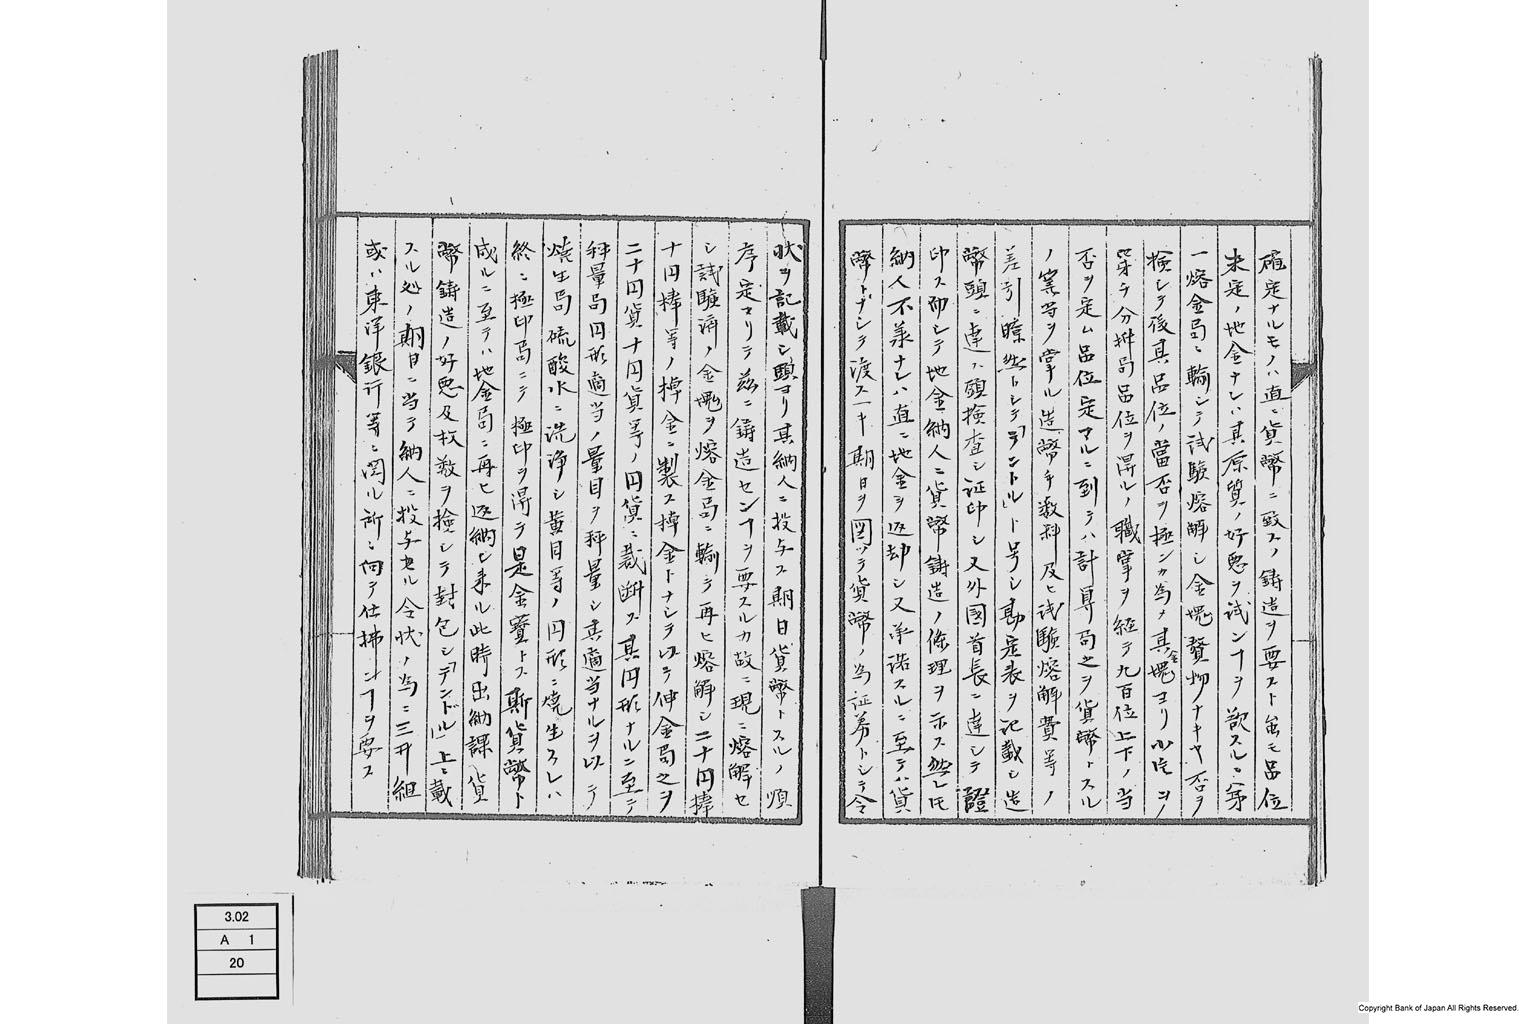 確定ナルモノハ直ニ貨幣ニ致スノ鋳造ヲ要スト虽モ品位
未定ノ地金ナレハ其原質ノ好悪ヲ試ンヿヲ欲スル故第
一熔金局ニ輸シテ試験熔解シ金塊贅物ナキヤ否ヲ
検シテ後其品位ノ當否ヲ極ンカ為メ其金塊ヨリ小片ヲ
分析局品位ヲ得ルノ職掌ヲ経テ九百位上下ノ当
否ヲ定ム品位定マルニ到テハ計算局之ヲ貨幣トスル
ノ業等ヲ掌ル造幣手数料及ヒ試験熔解費等ノ
差引瞭然トシテ「ラントル」ト号シ勘定表ヲ記載シ造
幣頭ニ達ス頭検査シ証印シ又外国首長ニ達シテ證
印ス而シテ地金納人ニ貨幣鋳造ノ條理ヲ示ス然レ𪜈
納人不羕ナレハ直ニ地金ヲ返却シ又承諾スルニ至テハ貨
幣トナシテ渡スヘキ期日ヲ図ツテ貨幣ノ為証券トシテ令
状ヲ記載シ頭ヨリ其納人ニ投与ス期日貨幣トスルノ順
序定マリテ茲ニ鋳造センヿヲ要スルカ故ニ現ニ熔解セ
シ試験済ノ金塊ヲ熔金局ニ輸テ再ヒ熔解シ二十円棹
十円棹等ノ棹金ニ製ス棹金トナシテ以テ伸金局之ヲ
二十円貨十円貨等ノ円貨ニ裁断ス其円形ナルニ至テ
秤量局円形適当ノ量目ヲ秤量シ其適当ナルヲ以テ
焼生局硫酸水ニ洗浄シ黄目等ノ円形ニ焼生スレハ
終ニ極印局ニテ極印ヲ得テ是金寶トス斯貨幣ト
成ルニ至テハ地金局ニ再ヒ返納シ来ル此時出納課貨
幣鋳造ノ好悪及枚数ヲ検シテ封包シ「テンドル」上ニ載
スル処ノ期日ニ当テ納人ニ投与セル令状ノ為ニ三井組
或ハ東洋銀行等ニ関ル所ニ向テ仕拂ンヿヲ要ス
3.02
A 1
20
Copyright Bank of Japan All Rights Reserved.